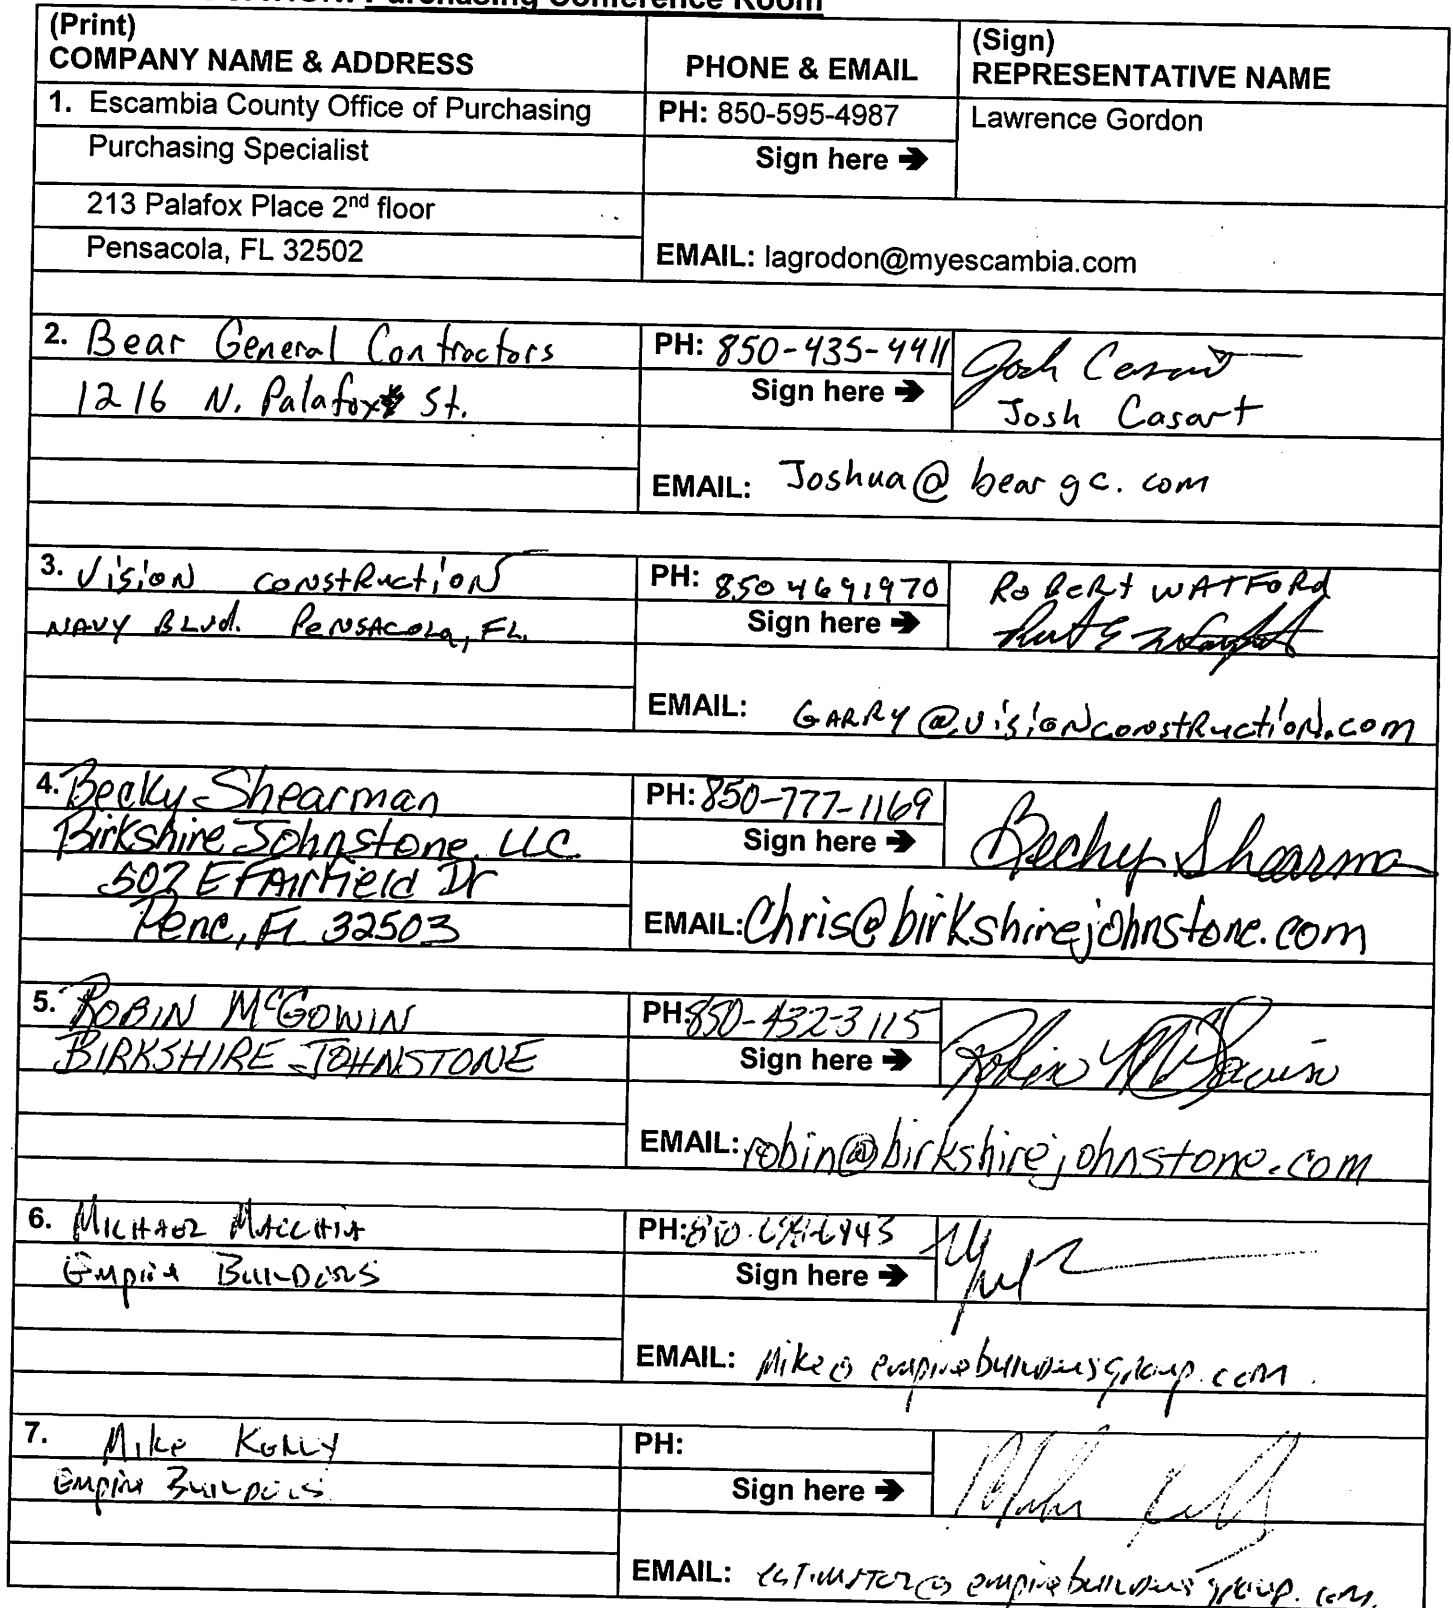 Purchasing Conference Room
(Print)
COMPANY NAME & ADDRESS
PHONE & EMAIL
(Sign)
REPRESENTATIVE NAME
1. Escambia County Office of Purchasing
PH: 850-595-4987
Lawrence Gordon
Purchasing Specialist
Sign here ➔
213 Palafox Place 2nd floor
Pensacola, FL 32502
EMAIL: lagrodon@myescambia.com
2. Bear General Contractors
PH: 850-435-4411
Josh Casart
1216 N. Palafox St.
Sign here ➔
Josh Casart
EMAIL: Joshua@beargc.com
3. Vision Construction
PH: 850 4691970
Robert Watford
Navy Blvd. Pensacola, FL.
Sign here ➔
EMAIL: GARRY@visionconstruction.com
4. Becky Shearman
PH: 850-777-1169
Becky Shearman
Birkshire Johnstone LLC.
Sign here ➔
507 E Fairfield Dr
Penc, FL 32503
EMAIL: Chris@birkshirejohnstone.com
5. ROBIN McGOWIN
PH: 850-432-3115
Robin McGowin
BIRKSHIRE JOHNSTONE
Sign here ➔
EMAIL: robin@birkshirejohnstone.com
6. Michael Macchia
PH:
Empire Builders
Sign here ➔
EMAIL: Mike@empirebuildersgroup.com
7. Mike Kelly
PH:
Empire Builders
Sign here ➔
Mike Kelly
EMAIL: estimator@empirebuildersgroup.com